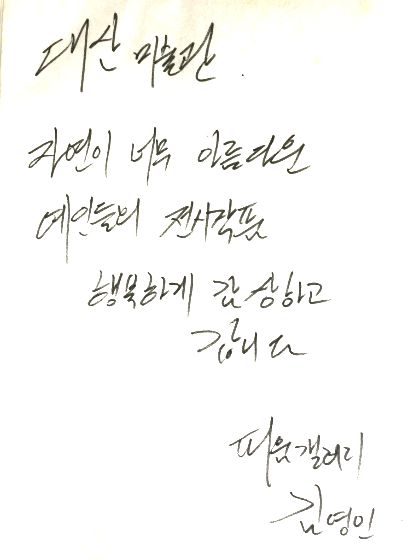 대산 미술관.
자연이 너무 아름다운
예인들의 전시작품
행복하게 감상하고
갑니다
피움갤러리
김영인